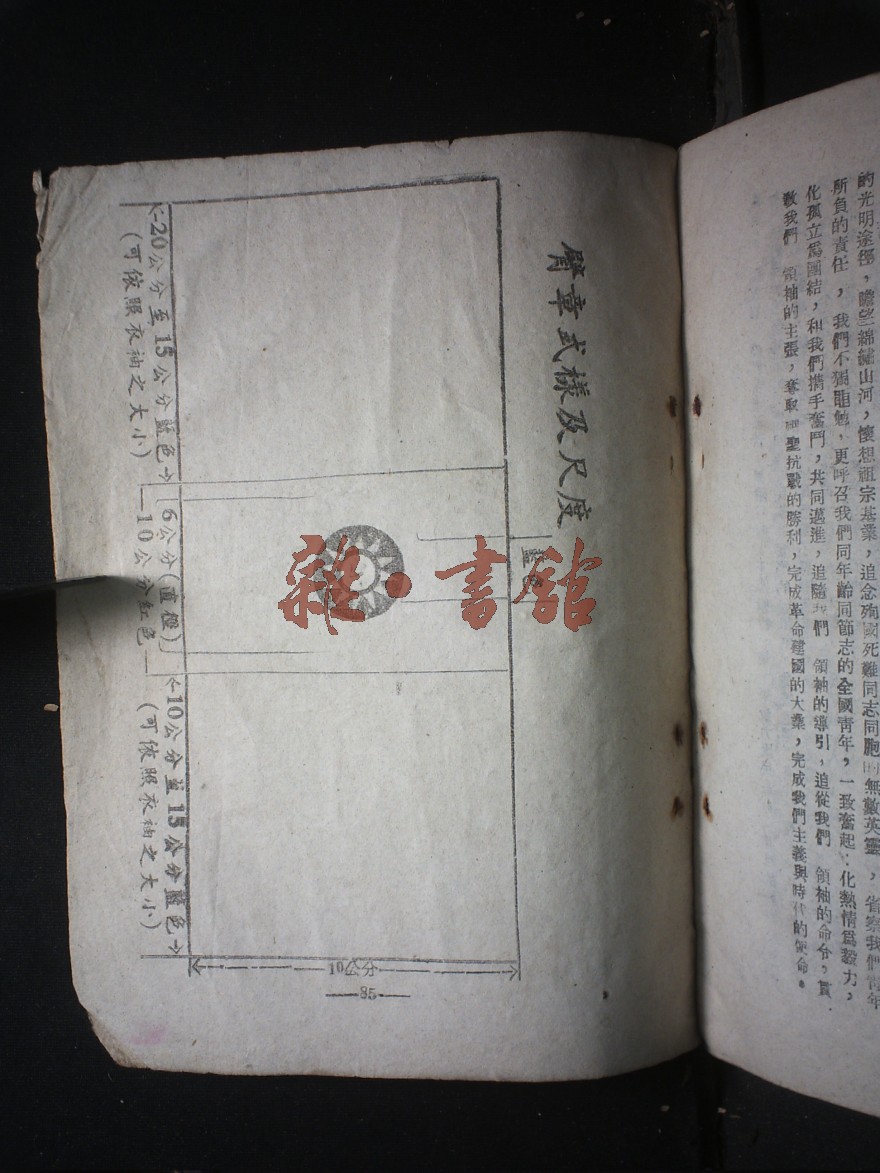 的光明途徑，瞻望錦繡山河，懷想祖宗基業，追念殉國死難同志同胞的無數英靈，省察我們青年
所負的責任，我們不獨黽勉，更呼召我們同年齡同節志的全國青年，一致奮起：化熱情爲毅力，
化孤立爲團結，和我們携手奮鬥，共同邁進，追隨我們　領袖的導引，追從我們　領袖的命令，貫
我們　領袖的主張，奪取　聖抗戰的勝利，完成革命建國的大業，完成我們主義與時代的使命。
臂章式樣及尺度
藍
←20公分至15公分藍色→
(可依照衣袖之大小)
6公分(直徑)
10公分紅色
←10公分至15公分藍色→
(可依照衣袖之大小)
10公分
—85—
雜·書館